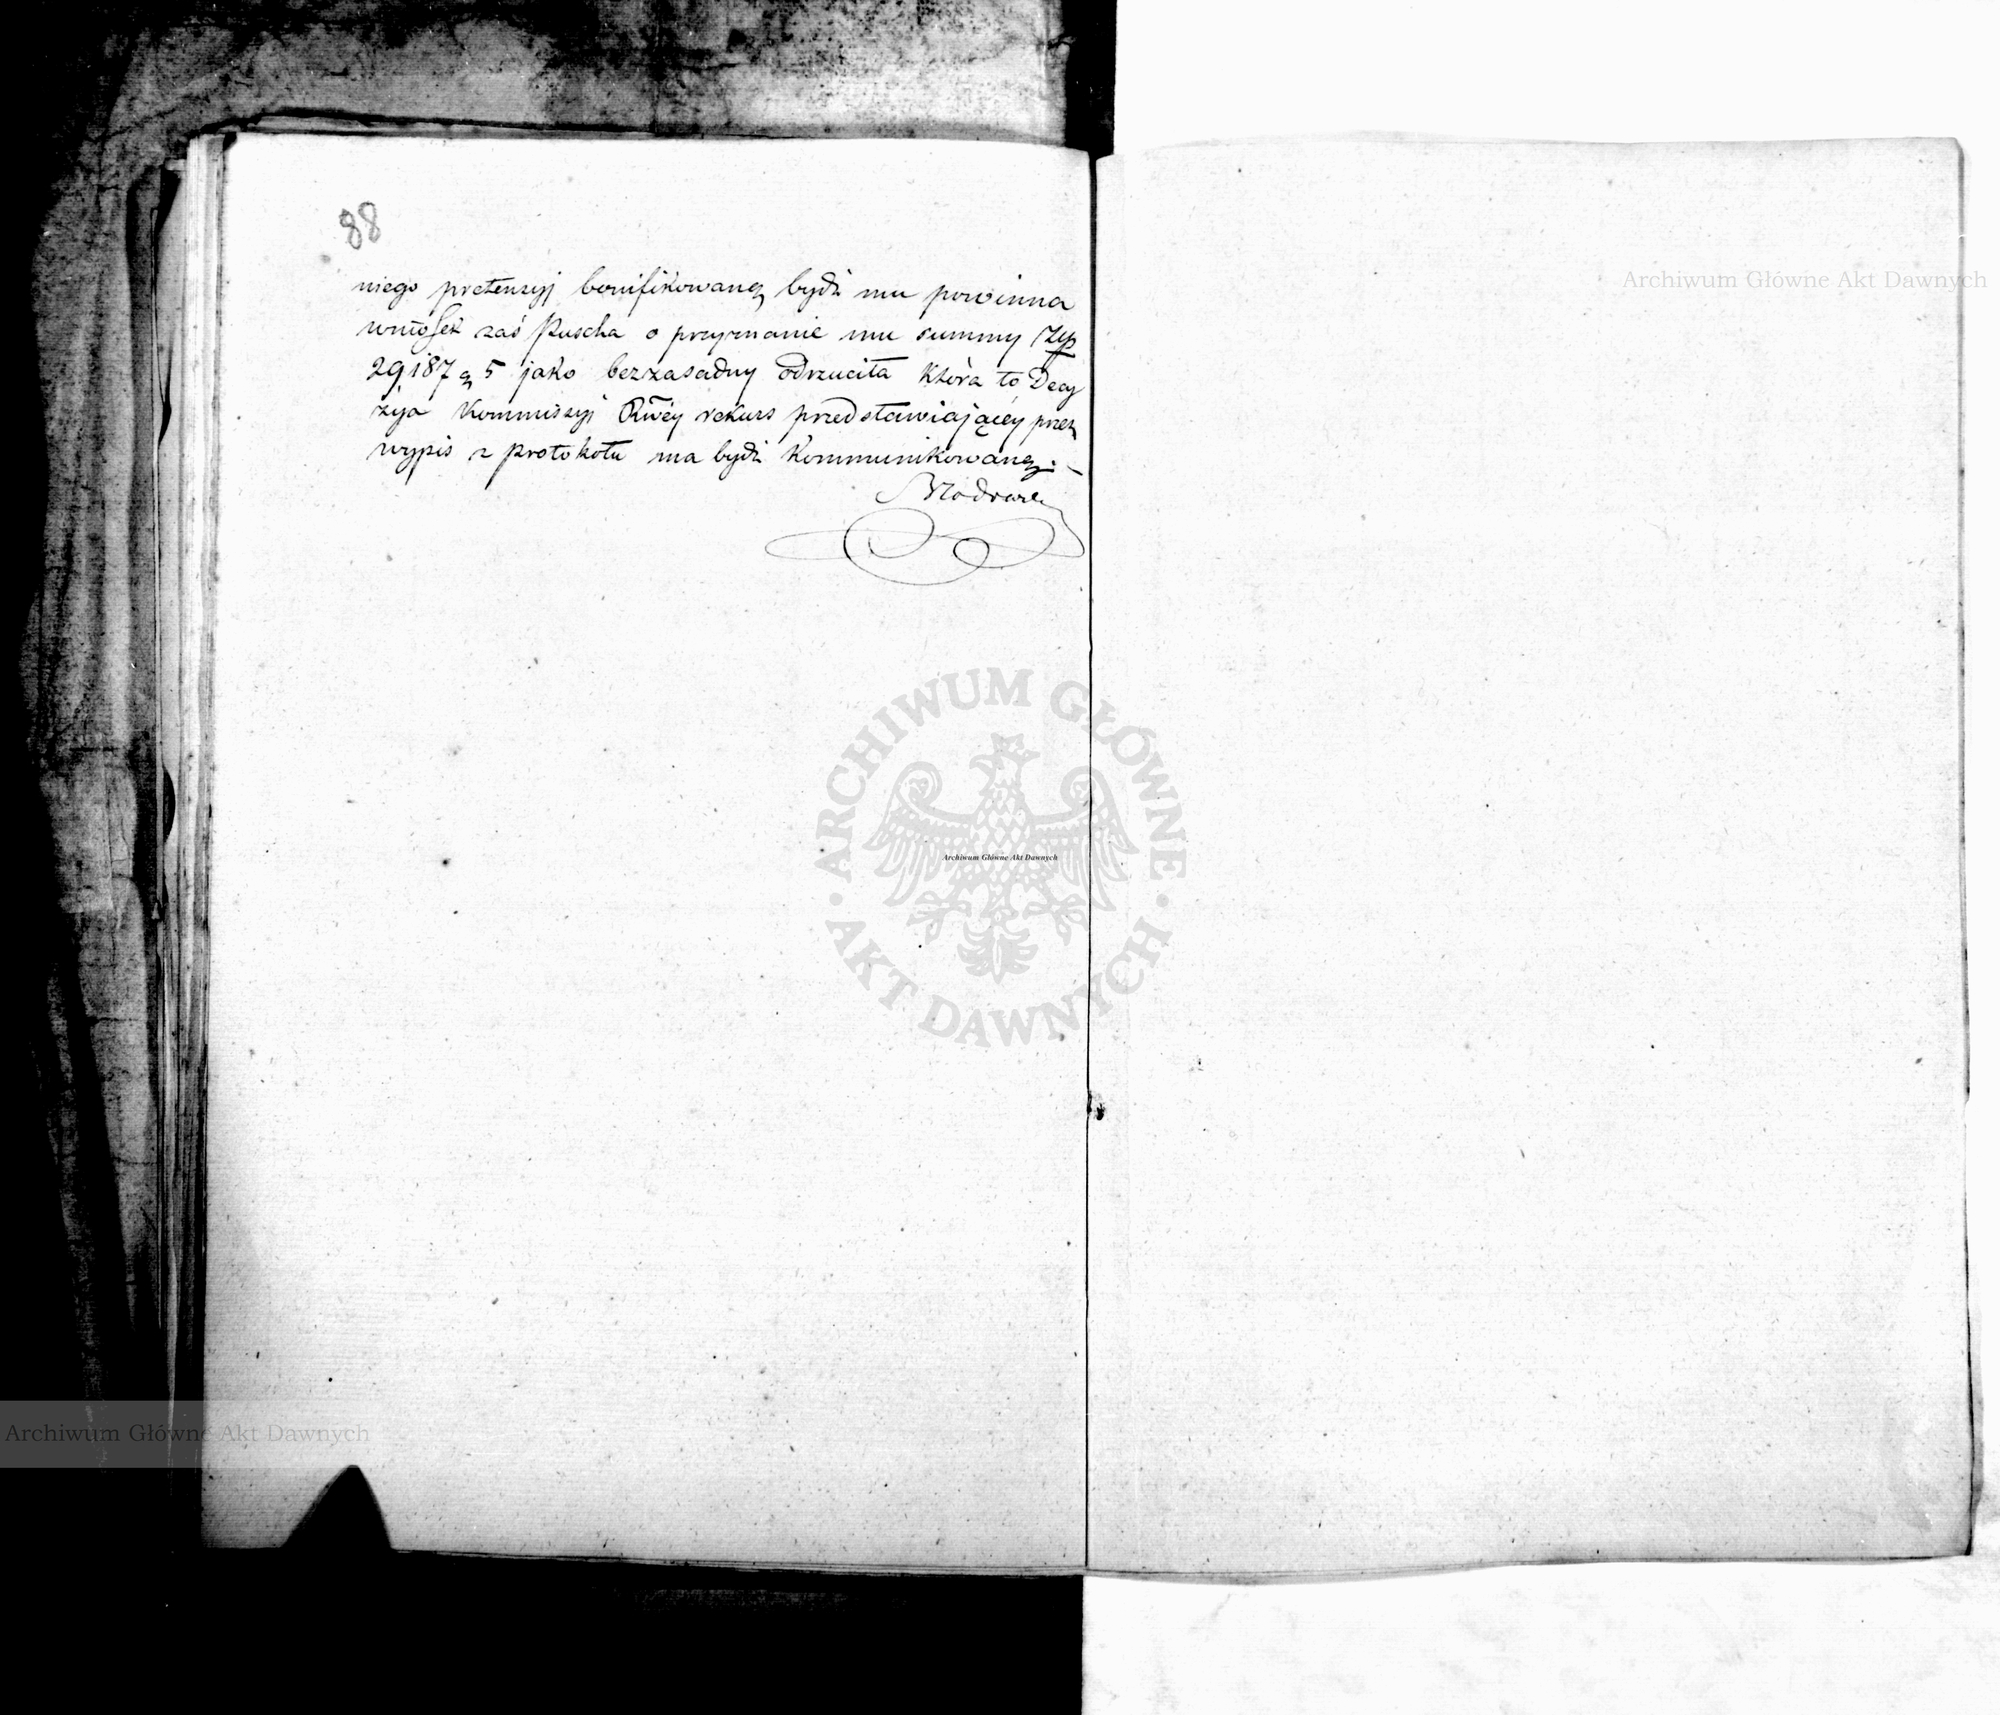 88
niego pretensyj bonifikowaną bydź mu powinna
wniosek zaś Puscha o przyznanie mu summy Złp
29,187 g 5 jako bezzasadny odrzuciła Która to Decy
zya Kommissyi Rwéy rekurs przedstawiaiącéy przez
wypis z protokołu ma bydź Kommunikowaną. –
Archiwum Główne Akt Dawnych
ARCHIWUM GŁÓWNE
Archiwum Główne Akt Dawnych
· AKT DAWNYCH ·
Archiwum Główne Akt Dawnych